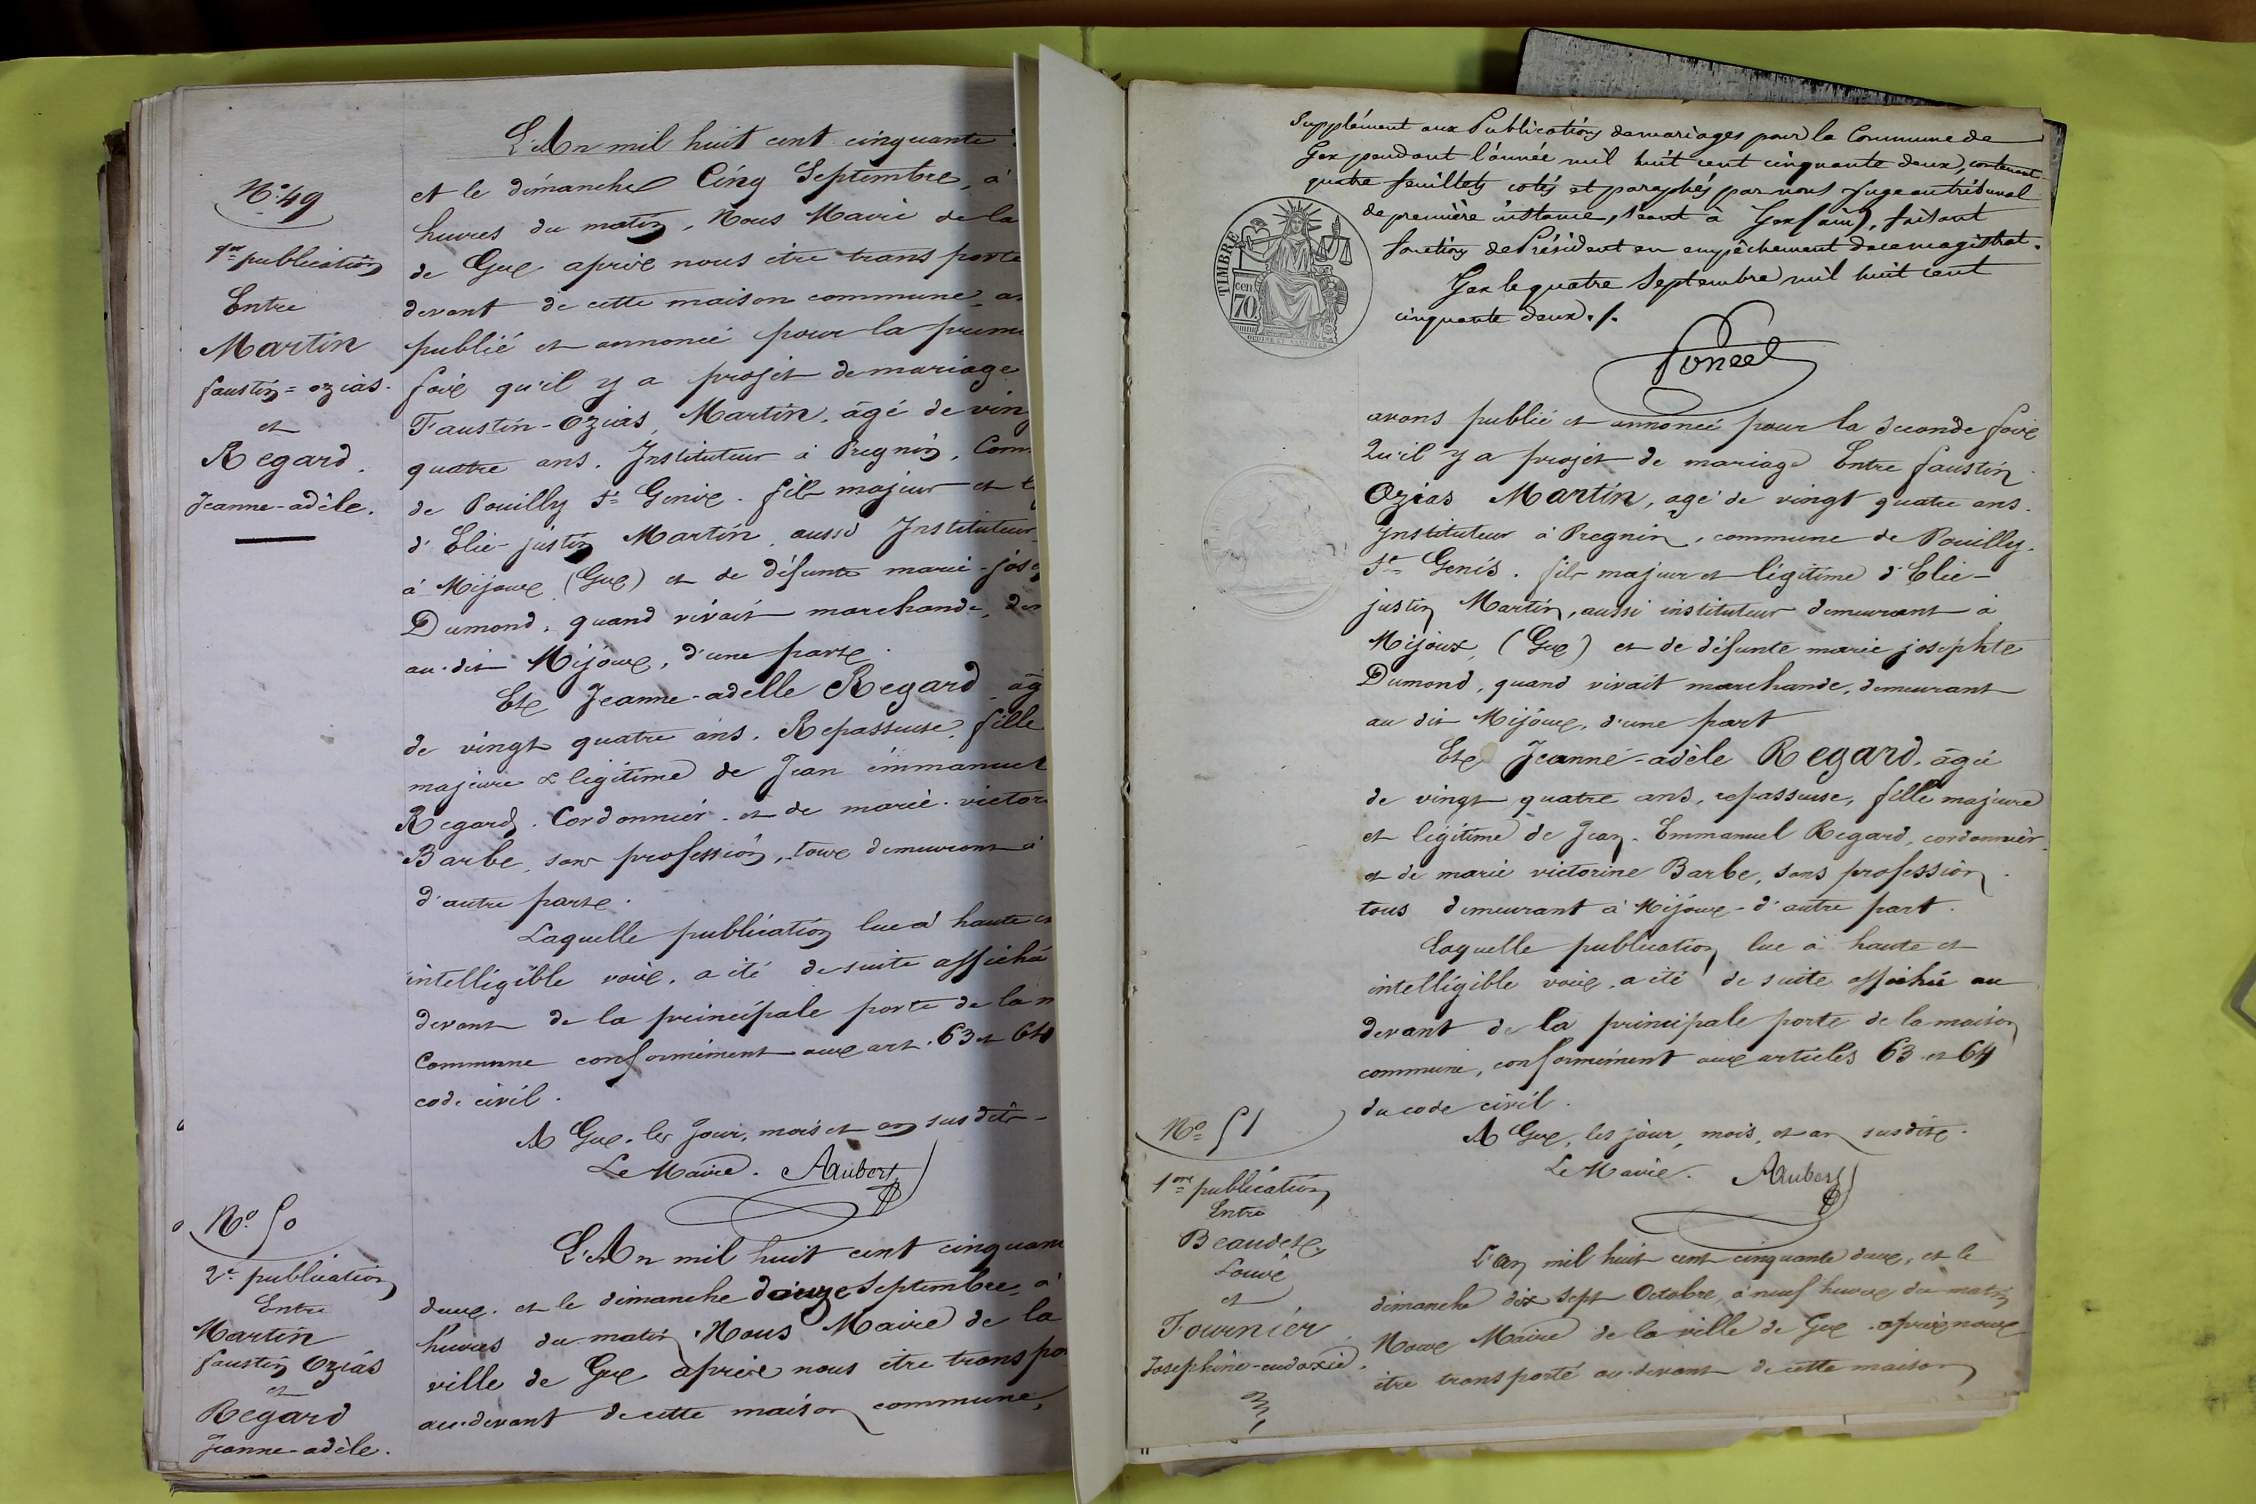 L'An mil huit cent cinquante
N° 49
et le dimanche Cinq Septembre, à
heures du matin, Nous Maire de la
1re publication
de Gex aprèx nous être transporté
Entre
devant de cette maison commune, a
Martin
publié et annoncé pour la prem
faustin=ozias.
foix qu'il y a projet de mariage
et
Faustin-Ozias, Martin, âgé de vin
Regard.
quatre ans. Instituteur à Pregnin, Com
Jeanne-adèle.
de Pouilly St Genix. fils majeur et
d'Elie-justin Martin, aussi Instituteur
à Mijoux (Gex) et de défunte marie-jos
Dumond, quand vivait marchande, de
au-dit Mijoux, d'une parte.
Ete Jeanne-adelle Regard, âg
de vingt quatre ans, Repasseuse, fille
majeure & légitime de Jean émmanuel
Regard, Cordonnier, et de marie-victor
Barbe, sans profession, toux demeurant à
d'autre parte.
Laquelle publication lue à haute et
intelligible voix, a été de suite affiché
devant de la principale porte de la m
Commune conformément aux art. 63 et 64
code civil.
A Gex, les Jour, mois et an susdits
Le Maire. AAubert
N° 50
2e publication
Entre
Martin
faustin Ozias
et
Regard
Jeanne-adèle.
L'An mil huit cent cinquan
deux, et le dimanche douze Septembre, à
heures du matin, Nous Maire de la
ville de Gex aprèx nous être transpo
au-devant de cette maison commune,
Supplément aux Publications de mariages pour la Commune de
Gex pendant l'année mil huit cent cinquante deux, contenant
quatre feuillets cotés et paraphés par nous Juge au tribunal
de première instance, séant à Gex (ain), faisant
fonction de Président en empêchement de ce magistrat.
Gex le quatre Septembre mil huit cent
cinquante deux./.
TIMBRE
cen
70
Poncet
avons publié et annoncé pour la seconde foix
Qu'il y a projet de mariage Entre faustin
Ozias Martin, agé de vingt quatre ans.
Instituteur à Pregnin, commune de Pouilly.
St Genis. fils majeur et légitime d'Elie-
justin Martin, aussi instituteur demeurant à
Mijoux, (Gex) et de défunte marie josephte
Dumond, quand vivait marchande, demeurant
au dit Mijoux, d'une part
Ete Jeanne-adèle Regard, âgée
de vingt quatre ans, repasseuse, fille majeure
et légitime de Jean-Emmanuel Regard, cordonnier
et de marie victorine Barbe, sans profession.
tous demeurant à Mijoux-d'autre part.
Laquelle publication lue à haute et
intelligible voix, a été de suite affiché au
devant de la principale porte de la maison
commune, conformément aux articles 63 et 64
du code civil.
A Gex, les jour, mois, et an susdits.
Le Maire. AAubert
N° 51
1ere publication
Entre
Beaudet
Louix
et
Fournier
Josephine-eudoxie.
L'an mil huit cent cinquante deux, et le
dimanche dix sept Octobre, à neuf heures du matin
Noux Maire de la ville de Gex aprèx noux
être transporté au-devant de cette maison